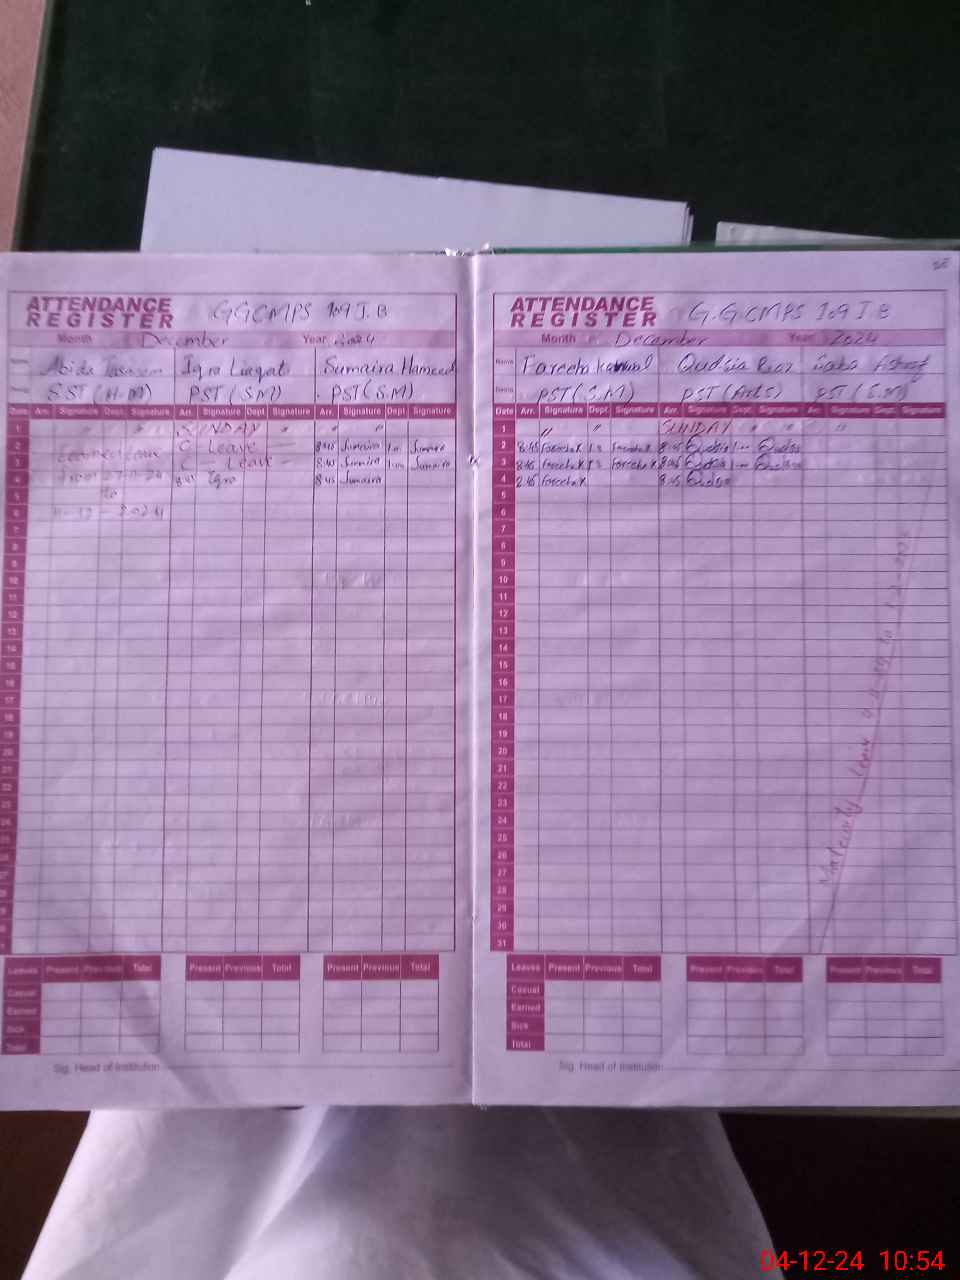 25
ATTENDANCE
REGISTER
GGCMPS 109 J.B
Month December Year 2024
Name Abida Iqra Liaqat Sumaira Hameed
SST (H.M) PST (S.M) PST (S.M)
Date Arr. Signature Dept. Signature Arr. Signature Dept. Signature Arr. Signature Dept. Signature
1 " " SUNDAY " "
2 C Leave 8:45 Sumaira Sumaira
3 C - Leave - 8:45 Sumaira Sumaira
4 8:45 Iqra 8:45 Sumaira
5 to
6 2024
7
8
9
10
11
12
13
14
15
16
17
18
19
20
21
22
23
24
25
26
27
28
29
Leaves Present Previous Total Present Previous Total Present Previous Total
Casual
Earned
Sick
Total
Sig. Head of Institution
ATTENDANCE
REGISTER
G.GCMPS 109 J.B
Month December Year 2024
Name Fareeha Qudsia Riaz Saba
PST (S.M) PST (Arts) PST (S.M)
Date Arr. Signature Dept. Signature Arr. Signature Dept. Signature Arr. Signature Dept. Signature
1 " " SUNDAY " " "
2 8:45 Fareeha K Fareeha K 8:45 Qudsia Qudsia
3 8:45 Fareeha K Fareeha K 8:45 Qudsia Qudsia
4 Fareeha K 8:45 Qudsia
5
6
7
8
9
10
11
12
13
14
15
16
17
18
19
20
21
22
23
24
25
26
27
28
29
30
31
Maternity Leave
Leaves Present Previous Total Present Previous Total Present Previous Total
Casual
Earned
Sick
Total
Sig. Head of Institution
04-12-24 10:54